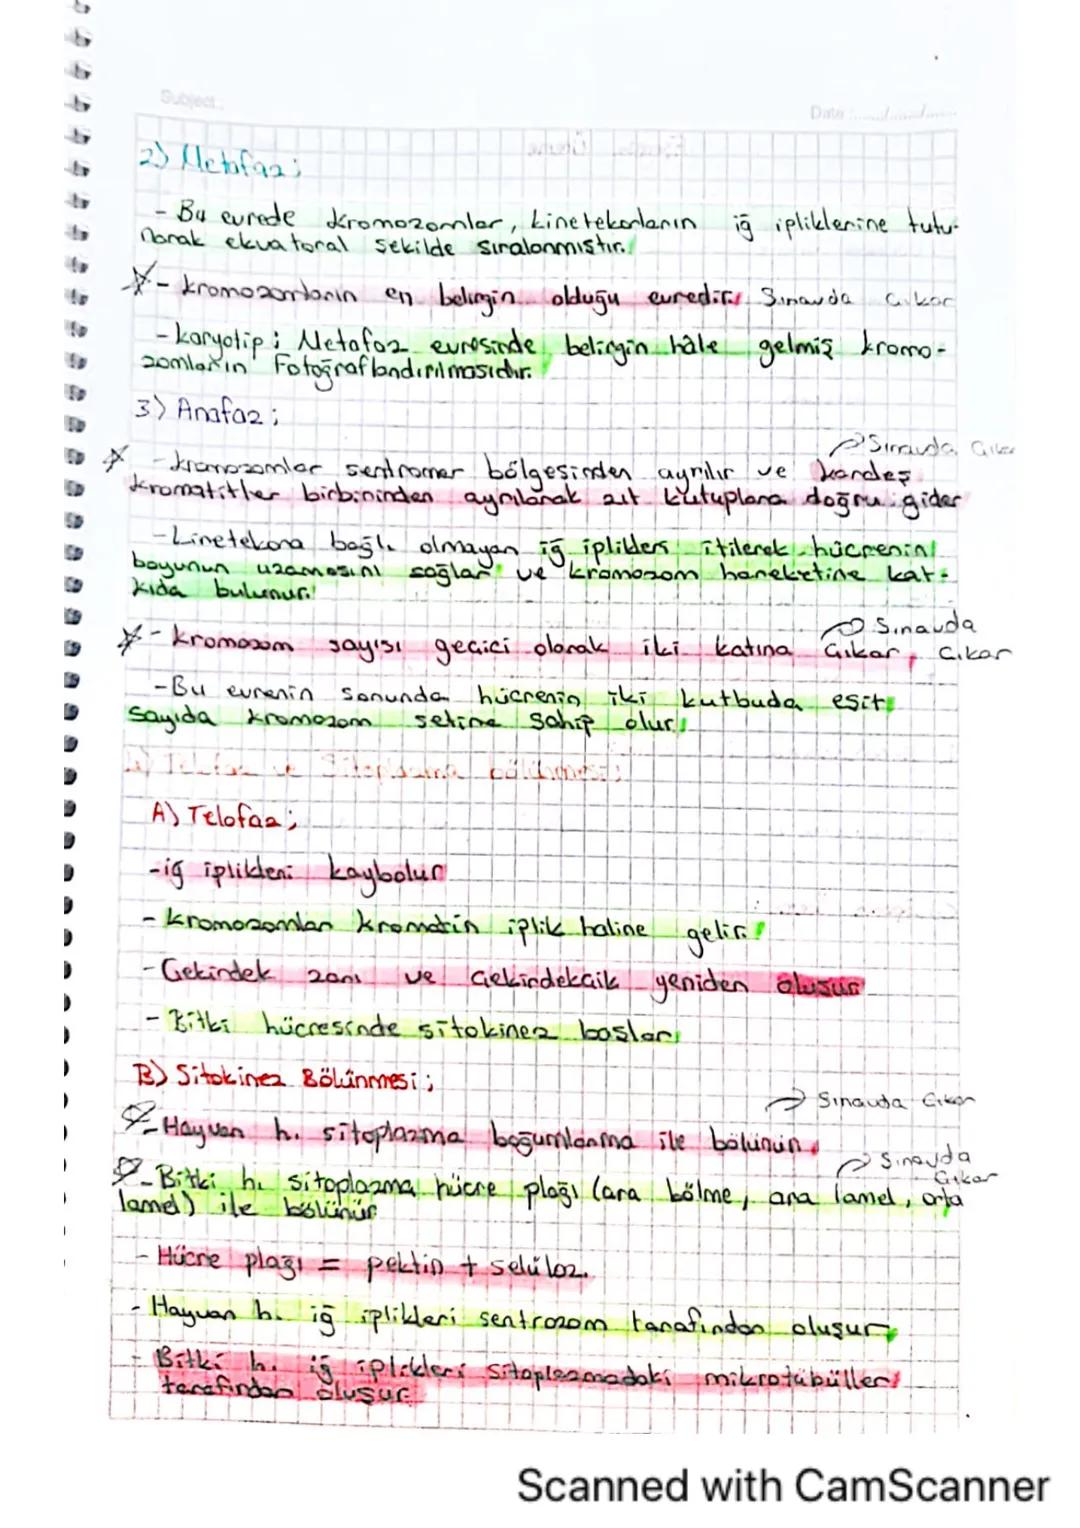 Subject:
Date :....../....../......
2) Metafaz;
- Bu evrede kromozomlar, kinetekorların iğ ipliklerine tutu-
narak ekvatoral şekilde sıralanmıştır.
- kromozomların en belirgin olduğu evredir. Sınavda Çıkar
- karyotip: Metafaz evresinde belirgin hâle gelmiş kromo-
zomların Fotoğraflandırılmasıdır.
3) Anafaz;
Sınavda Çıkar
- kromozomlar sentromer bölgesinden ayrılır ve kardeş
kromatitler birbirinden ayrılarak zıt kutuplara doğru gider
- Kinetekora bağlı olmayan iğ iplikleri itilerek hücrenin
boyunun uzamasını sağlar ve kromozom hareketine kat-
kıda bulunur.
Sınavda
- kromozom sayısı geçici olarak iki katına çıkar, Çıkar
- Bu evrenin sonunda hücrenin iki kutbuda eşit
sayıda kromozom setine sahip olur.
4) Telofaz ve Sitoplazma bölünmesi;
A) Telofaz;
- iğ iplikleri kaybolur
- kromozomlar kromatin iplik haline gelir.
- Çekirdek zarı ve çekirdekçik yeniden oluşur
- Bitki hücresinde sitokinez başlar
B) Sitokinez Bölünmesi;
Sınavda Çıkar
- Hayvan h. sitoplazma boğumlanma ile bölünür.
Sınavda
Çıkar
- Bitki h. sitoplazma hücre plağı (ara bölme, ara lamel, orta
lamel) ile bölünür
- Hücre plağı = pektin + selüloz.
- Hayvan h. iğ iplikleri sentrozom tarafından oluşur,
- Bitki h. iğ iplikleri sitoplazmadaki mikrotübüller
tarafından oluşur.
Scanned with CamScanner